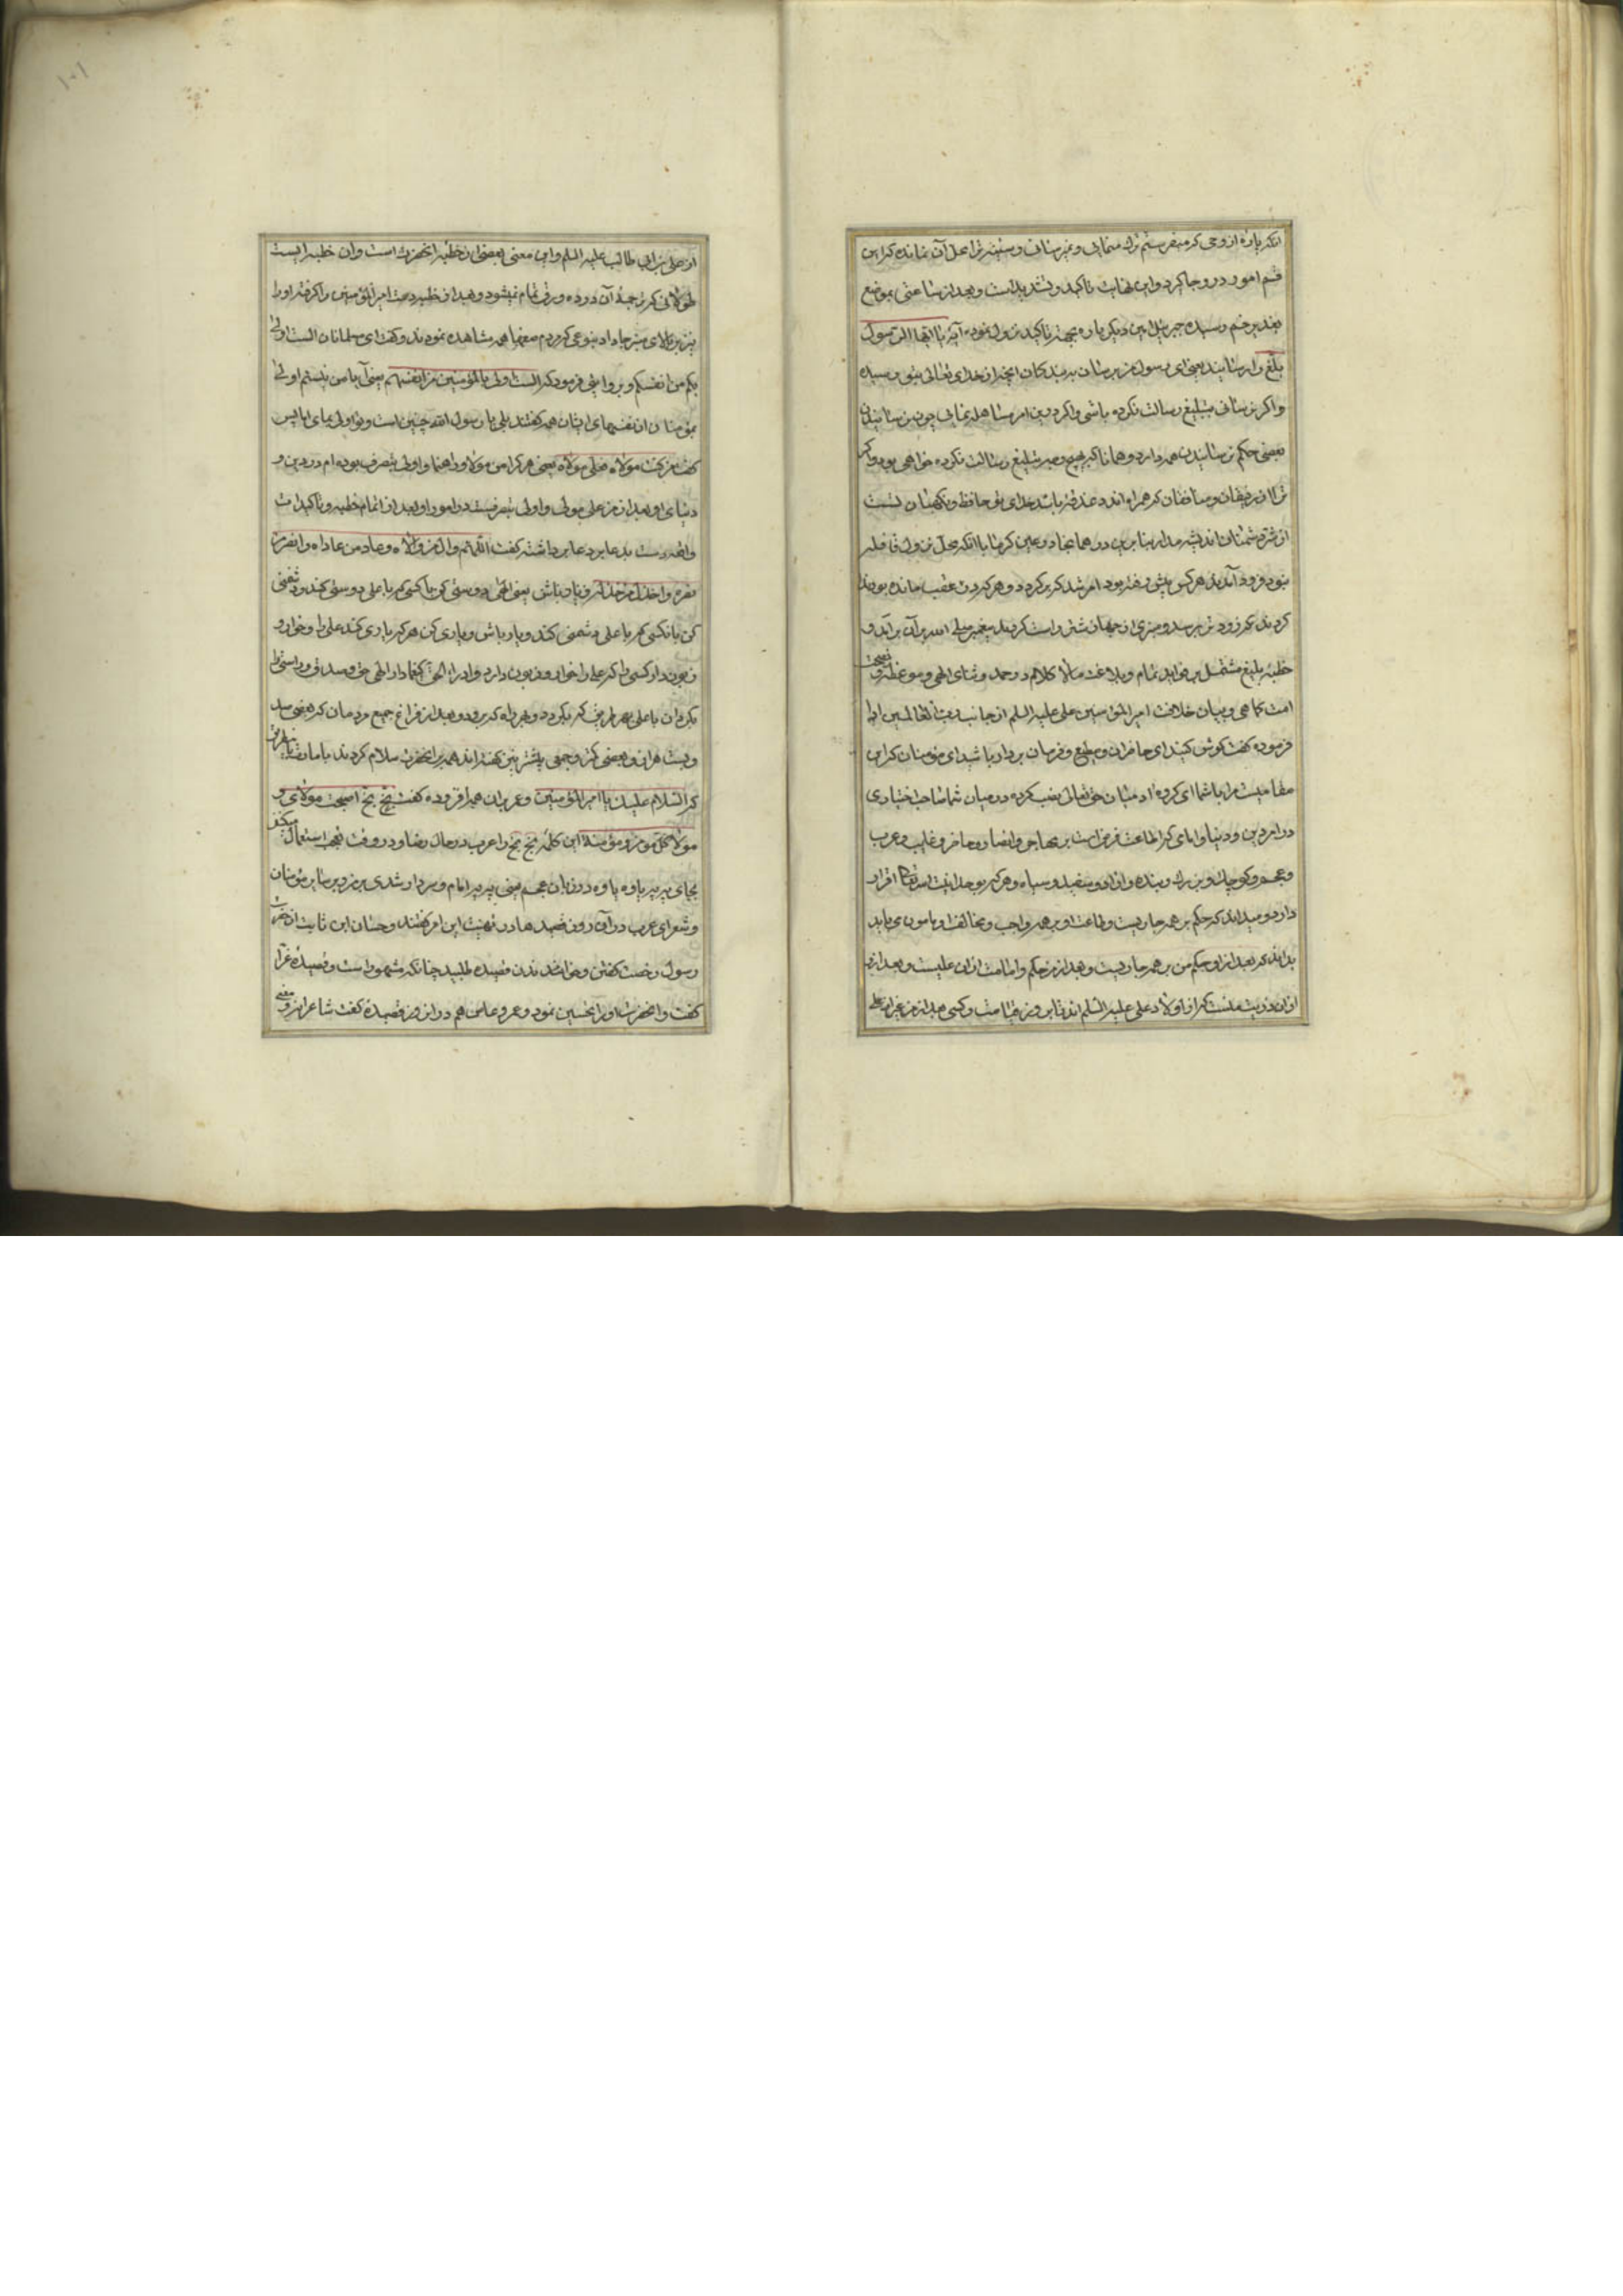 انکه پاره از وحی که میفرستم ترک مینمایی و نمیرسانی و سینه ترا محل آن نمانده که این
قسم امور درو جا کیرد و این نهایت تاکید و تشدید است و بعد از ساعتی بموضع
غدیر خم رسیده جبرئیل امین دیکر باره بجهة تاکید نزول نموده آیة یا ایها الرسول
بلغ را رسانید یعنی ای رسول من برسان بربندکان انچه از خدای تعالی بتو رسیده
و اکر نرسانی تبلیغ رسالت نکرده باشی و اکر درین امر مساهله نمائی چون نرسانیدن
بعضی حکم نرسانیدن همه دارد و همانا که هیچ وجه تبلیغ رسالت نکرده خواهی بود و اکر
ترا از رفیقان و منافقان که همراه اند دغدغه باشد خدای تو حافظ و نکهبان تست
از شر دشمنان اندیشه مدار بنابرین در همانجا در عین کرما با انکه محل نزول قافله
نبود فرود آمدند هر کس پیش رفته بود امر شد که برکردد و هر که در عقب مانده بود
کردند که زود تر برسد و منبری از جهاز شتر راست کردند پیغمبر صلی الله بران برآمد و
خطبه بلیغ مشتمل بر فواید تمام و بلاغت مالا کلام در حمد و ثنای الهی و موعظه و نصیحت
امت کماهی و بیان خلافت امیر المؤمنین علی علیه السلم از جانب رب العالمین ادا
فرموده کفت کوش کنید ای حاضران و مطیع و فرمان بردار باشید ای مؤمنان که این
مقامیست مرا با شما ای کروه ادمیان حق تعالی نصب کرده در میان شما صاحب اختیاری
در امر دین و دنیا و امامی که اطاعت او فرض است بر مهاجر و انصار و حاضر و غایب و عرب
و عجم و کوچک و بزرک و بنده و ازاد و سفید و سیاه و هر که بوحدانیت الله تعالی اقرار
دارد و میداند که حکم بر همه جاریست و طاعت او بر همه واجب و مخالفت او ناسزا می باید
بداند که بعد از او حکم من بر همه جاریست و بعد از من حکم و امامت ازان علیست و بعد از
ازان ذریت منست که از اولاد علی علیه السلم اند تا بروز قیامت و کسی بعد از من غیر از علی
از علی بن ابی طالب علیه السلم و این معنی بعضی از خطبه انحضرت است و ان خطبه ایست
طولانی که ترجمه آن در ده ورق تمام نمیشود و بعد از خطبه دست امیر المؤمنین را کرفته او را
نیز بر بالای منبر جا داد بنوعی که مردم همه مشاهده نمودند و کفت ای مسلمانان الست اولی
بکم من انفسکم و بروایتی فرمود که الست اولی بالمؤمنین من انفسهم یعنی آیا من نیستم اولی
بمؤمنان از نفسهای ایشان همه کفتند بلی یا رسول الله چنین است و تو اولی بمای اما پس
کفت من کنت مولاه فعلی مولاه یعنی هر که را من مولا و راهنما و اولی بتصرف بوده ام در دین و
دنیای او بعد از من علی مولی و اولی بتصرفست در امور او و بعد از اتمام خطبه و تاکیدات
وافیه دست بدعا برداشته کفت اللهم وال من والاه و عاد من عاداه و انصر من
نصره و اخذل من خذله و یار باش یعنی الهی دوستی کن با کسی که با علی دوستی کند و دشمنی
کن با انکس که با علی دشمنی کند و یار باش و یاری کن هر که یاری کند علی را و خوار و
زبون دار کسی را که علی را خوار و زبون دارد و ادر الحق کیفما دار الهی حق و صدق و راستی را
بکردان با علی بهر طریق که بکردد و بهر راه که برود و بعد از فراغ جمیع مردمان که بعضی صد
و بیست هزار و بعضی کمتر و جمعی بیشتر نیز کفته اند همه بر انحضرت سلام کردند بامارت باین طریق
که السلام علیک یا امیر المؤمنین و عمر بران همه افزوده کفت بخ بخ اصبحت مولای و
مولا کل مؤمن و مؤمنة این کلمه بخ بخ را عرب در حال رضا و در وقت تعجب استعمال میکنند
بجای په په یا وه یا وه در زبان عجم یعنی په په امام و سردار شدی بر من و بر سایر مؤمنان
و شعرای عرب در آن روز قصیدها در تهنیت این امر کفتند و حسان ابن ثابت از حضرت
رسول رخصت کفتن و خواندن قصیده طلبید چنانکه مشهور است و قصیده غرا
کفت و انحضرت او را تحسین نمود و عمرو عاص هم دران روز قصیده کفت شاعرانه و